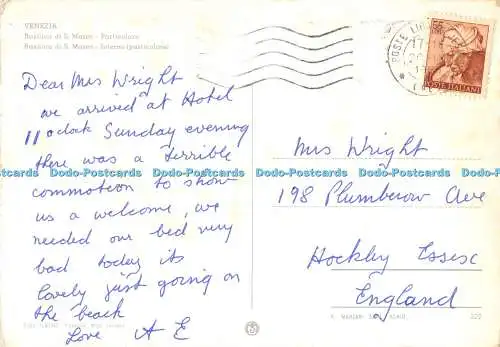 VENEZIA
Basilica di S. Marco - Particolare
Basilica di S. Marco - Interno (particolare)
Dear Mrs Wright
we arrived at Hotel
11 oclock Sunday evening
there was a terrible
commotion to show
us a welcome, we
needed our bed very
bad today its
lovely just going on
the beach
Love A E
POSTE ITALIANE
Mrs Wright
198 Plumberow Ave
Hockley Essex
England
Dodo-Postcards Dodo-Postcards Dodo-Postcards Dodo-Postcards Dodo-Postcards
Dodo-Postcards Dodo-Postcards Dodo-Postcards Dodo-Postcards Dodo-Postcards